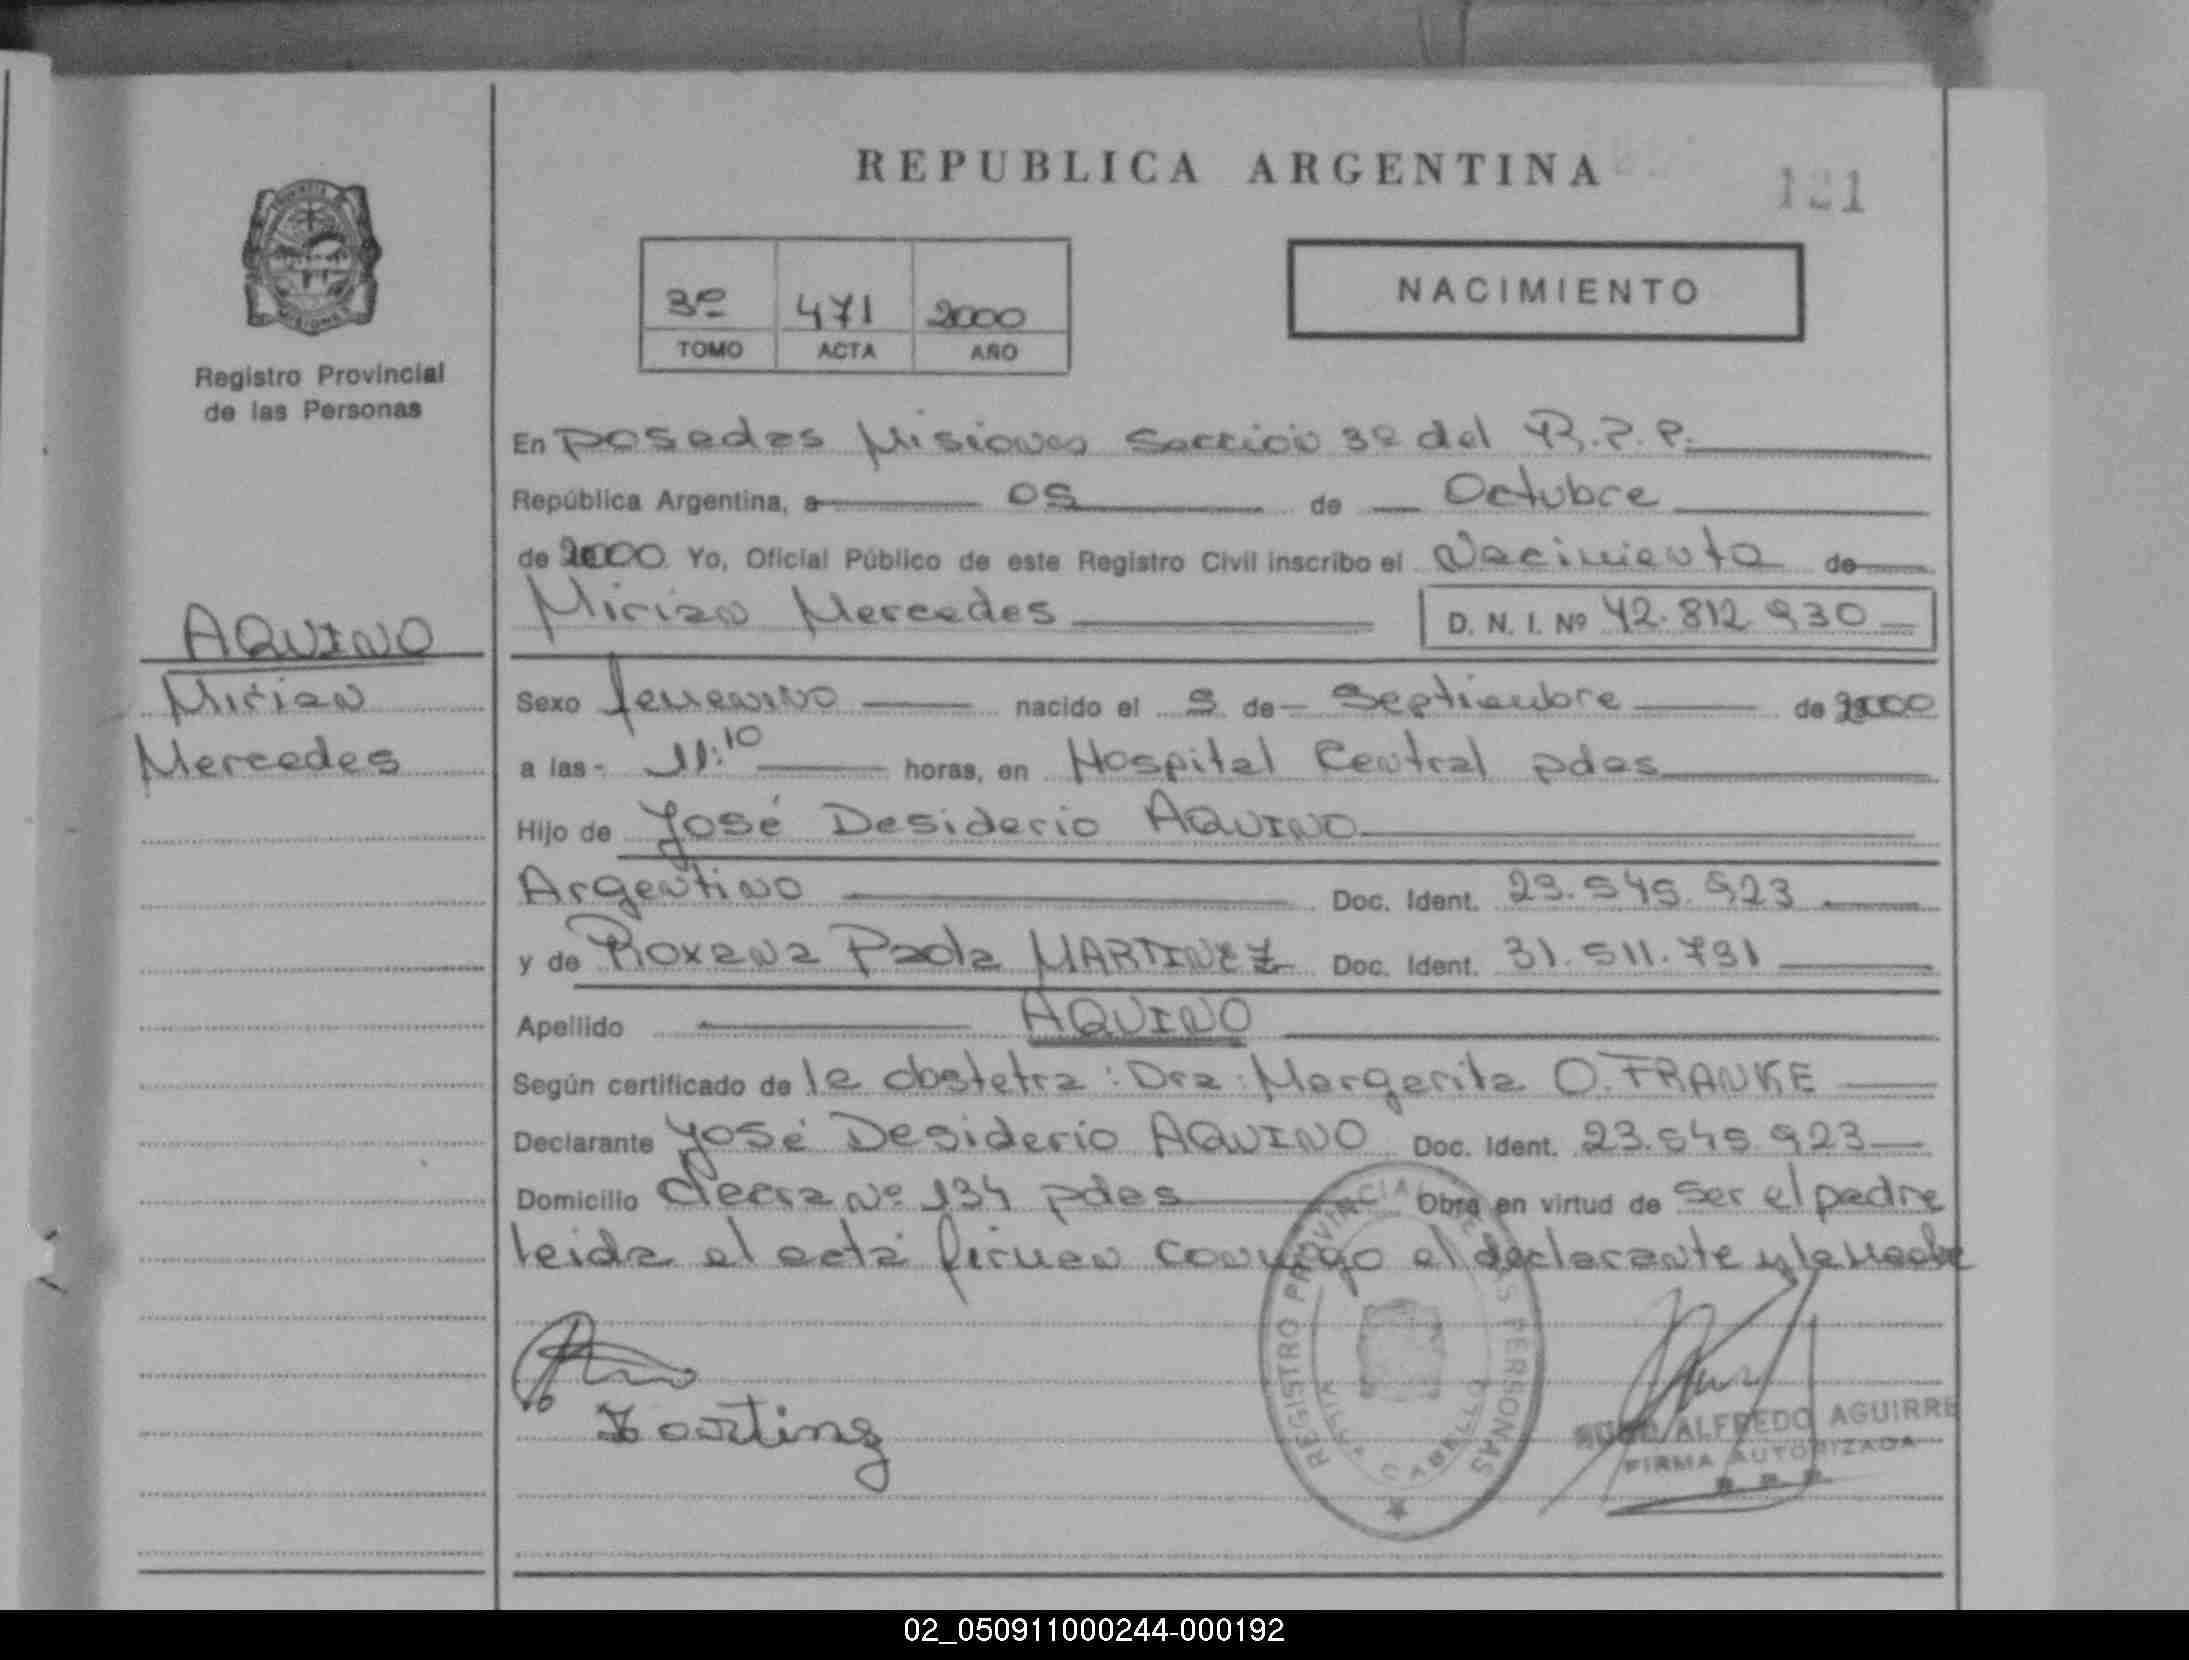 REPUBLICA ARGENTINA
121
NACIMIENTO
3º 471 2000
TOMO ACTA AÑO
Registro Provincial
de las Personas
En Posadas Misiones Sección 3º del R.P.P.
República Argentina, a 05 de Octubre
de 2000 Yo, Oficial Público de este Registro Civil inscribo el Nacimiento de
Mirian Mercedes D. N. I. Nº 42.812.930
AQUINO
Mirian
Mercedes
Sexo femenino nacido el 5 de Septiembre de 2000
a las 11:10 horas, en Hospital Central pdas
Hijo de José Desiderio AQUINO
Argentino Doc. Ident. 23.545.923
y de Roxana Paola MARTINEZ Doc. Ident. 31.511.791
Apellido AQUINO
Según certificado de la obstetra: Dra: Margarita O. FRANKE
Declarante José Desiderio AQUINO Doc. Ident. 23.545.923
Domicilio chacra Nº 134 pdas Obra en virtud de ser el padre
leida el acta firman conmigo el declarante y la Madre
REGISTRO PROVINCIAL DE LAS PERSONAS
CABALLO
ALFREDO AGUIRRE
FIRMA AUTORIZADA
02_050911000244-000192